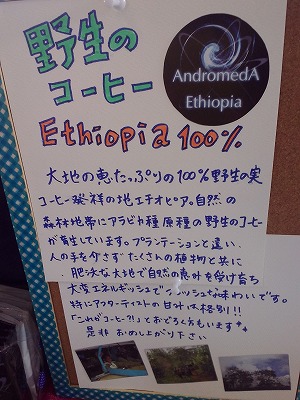 野生の
コーヒー
AndromedA
Ethiopia
Ethiopia 100%
大地の恵たっぷりの100%野生の実
コーヒー発祥の地エチオピア。自然の
森林地帯にアラビカ種原種の野生のコーヒー
が育生しています。プランテーションと違い、
人の手を介さず たくさんの植物と共に
肥沃な大地で自然の恵みを受け育ち
大変エネルギッシュでフレッシュな味わいです。
特にアフターテイストの甘みは格別!!
「これがコーヒー?!」とおどろく方もいます*
是非 おめし上がり下さい